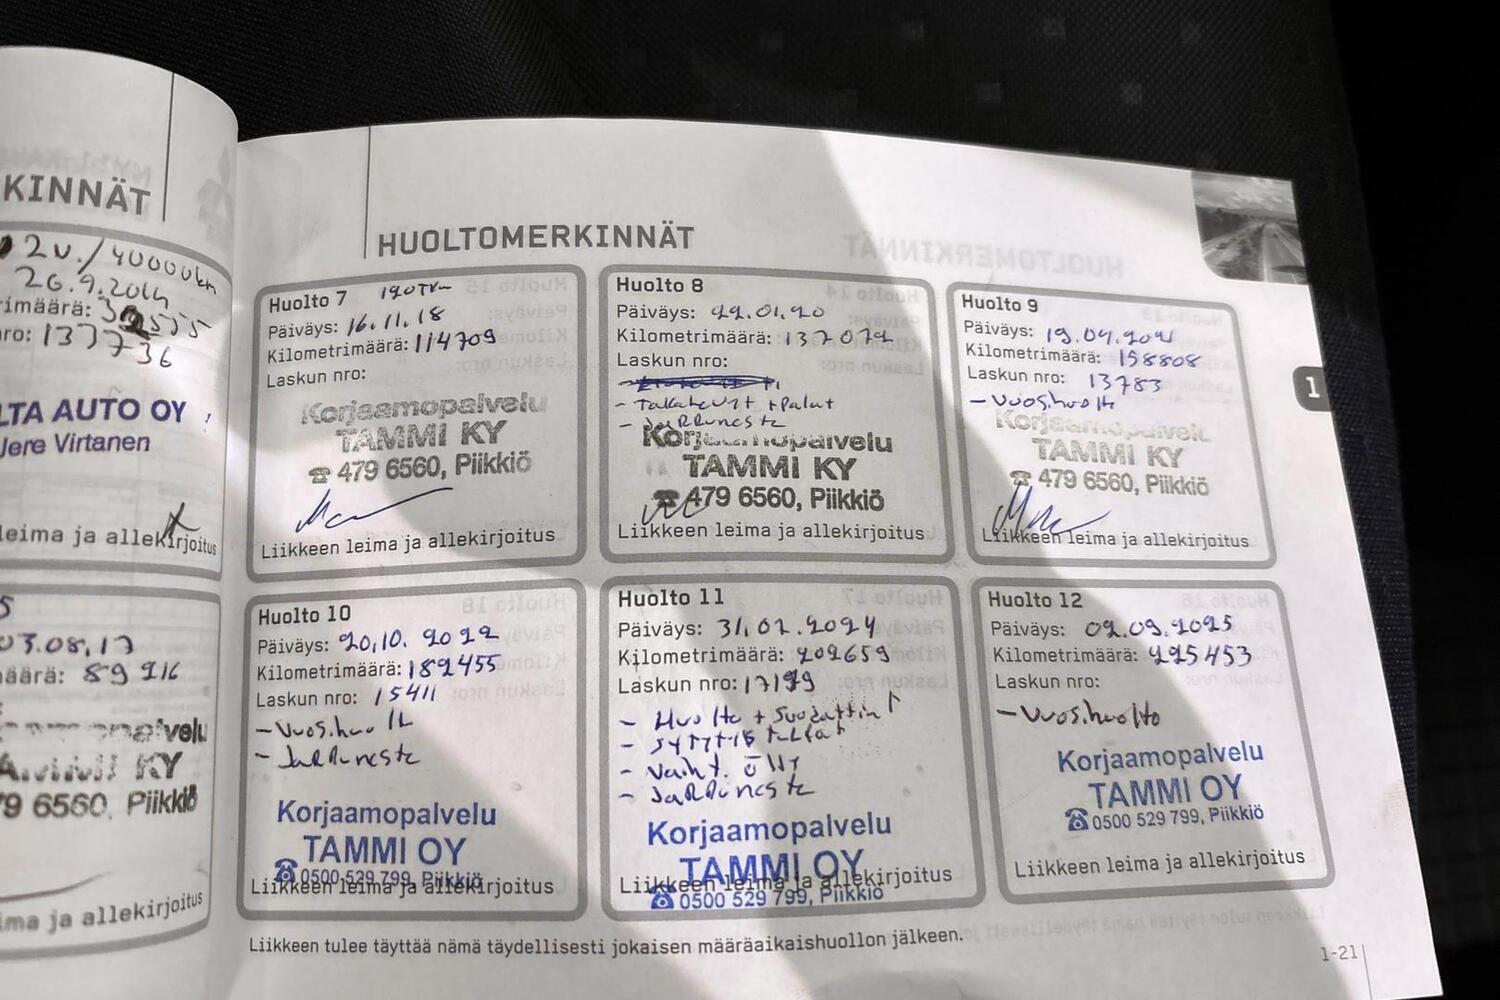 KINNÄT
2v./40000km
26.9.2014
rimäärä:
ro: 137736
LTA AUTO OY
Jere Virtanen
leima ja allekirjoitus
5
03.08.17
määrä: 89216
palvelu
TAMMI KY
79 6560, Piikkiö
ma ja allekirjoitus
HUOLTOMERKINNÄT
Huolto 7 120TKM
Päiväys: 16.11.18
Kilometrimäärä: 114709
Laskun nro:
Korjaamopalvelu
TAMMI KY
☎ 479 6560, Piikkiö
Liikkeen leima ja allekirjoitus
Huolto 8
Päiväys: 22.01.20
Kilometrimäärä: 137072
Laskun nro:
- Takatevyt + palat
- Jarruneste
Korjaamopalvelu
TAMMI KY
☎ 479 6560, Piikkiö
Liikkeen leima ja allekirjoitus
Huolto 9
Päiväys: 19.04.2021
Kilometrimäärä: 158808
Laskun nro: 13783
- Vuos.huolto
Korjaamopalvelu
TAMMI KY
☎ 479 6560, Piikkiö
Liikkeen leima ja allekirjoitus
Huolto 10
Päiväys: 20.10.2022
Kilometrimäärä: 182455
Laskun nro: 15411
- Vuos.huolto
- Jarruneste
Korjaamopalvelu
TAMMI OY
☎ 0500 529 799, Piikkiö
Liikkeen leima ja allekirjoitus
Huolto 11
Päiväys: 31.07.2024
Kilometrimäärä: 202659
Laskun nro: 17199
- Huolto + Suodattimet
- Sytytystulpat
- Vaiht. öljy
- Jarruneste
Korjaamopalvelu
TAMMI OY
Liikkeen leima ja allekirjoitus
☎ 0500 529 799, Piikkiö
Huolto 12
Päiväys: 02.09.2025
Kilometrimäärä: 225453
Laskun nro:
- Vuos.huolto
Korjaamopalvelu
TAMMI OY
☎ 0500 529 799, Piikkiö
Liikkeen leima ja allekirjoitus
1
Liikkeen tulee täyttää nämä täydellisesti jokaisen määräaikaishuollon jälkeen.
1-21